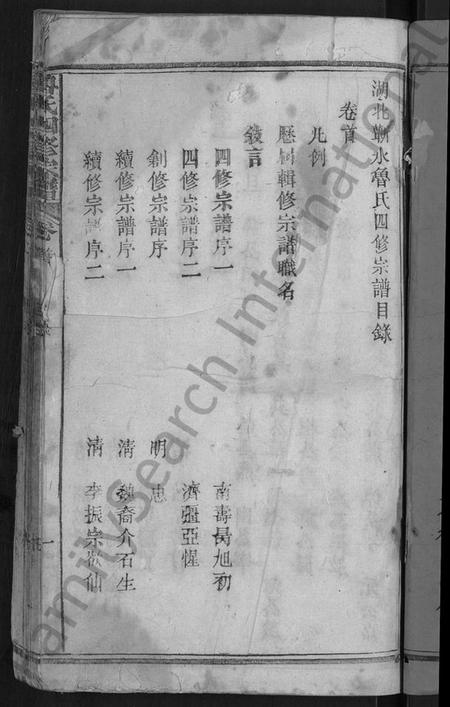 湖北蘄水魯氏四修宗譜目錄
卷首
凡例
歷屆輯修宗譜職名
發言
四修宗譜序一 南壽昺旭初
四修宗譜序二 濟疆亞惺
創修宗譜序 明 忠
續修宗譜序一 清 魏裔介石生
續修宗譜序二 清 李振宗欲仙
魯氏四修宗譜 卷首
FamilySearch International